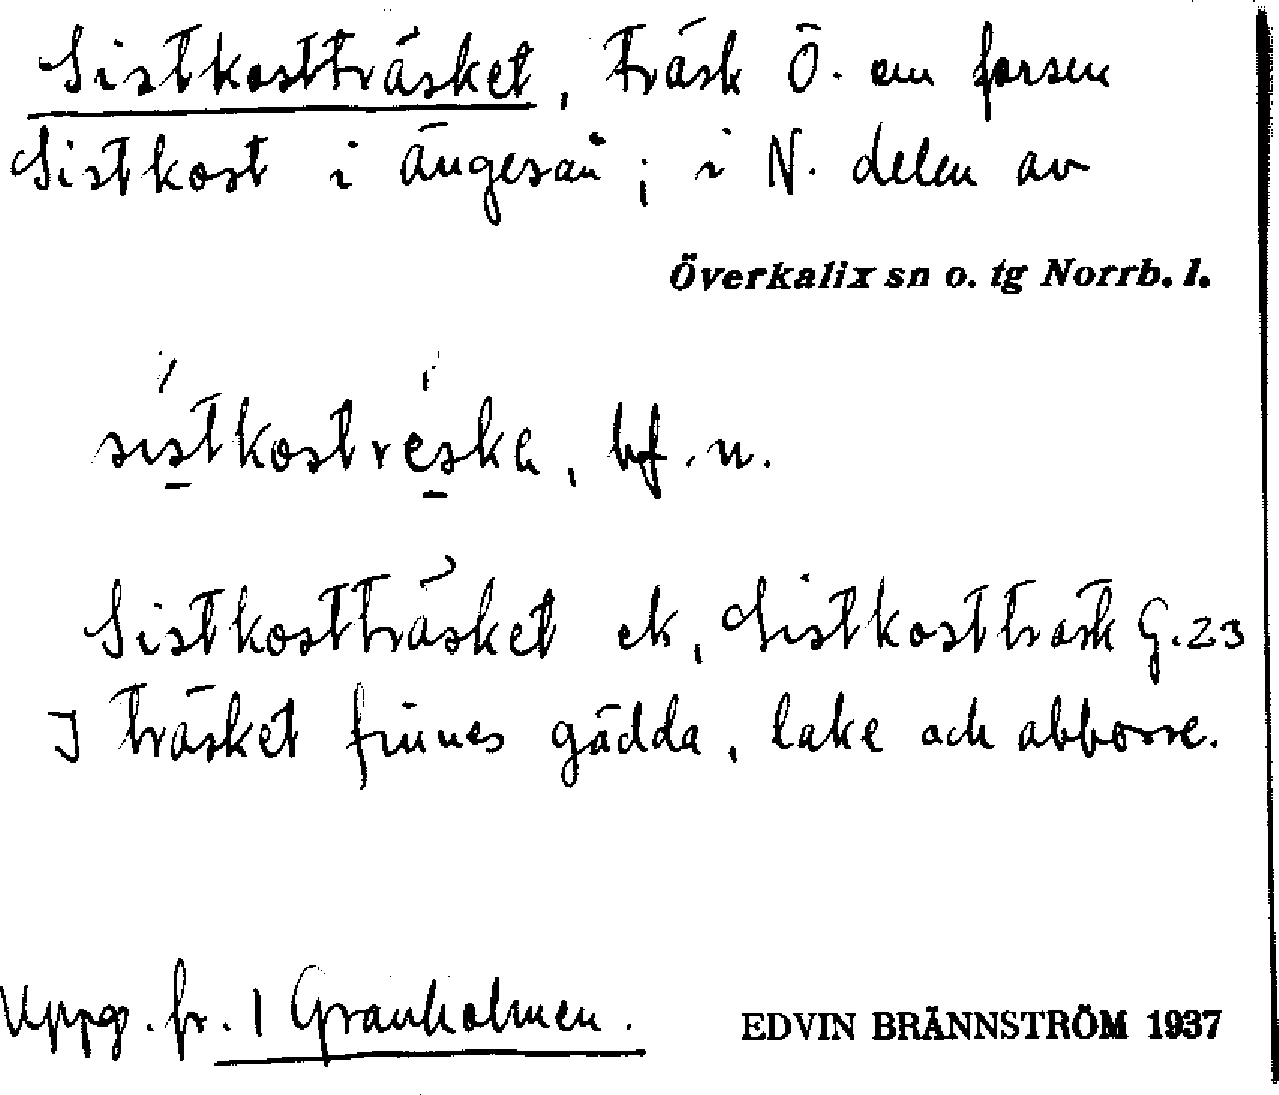 Sistkostträsket, träsk Ö. om forsen
Sistkost i ängesån; i N. delen av
Överkalix sn o. tg Norrb. l.
sistkostreska, bf. n.
Sistkostträsket ek, Sistkostträsk G.23
I träsket finnes gädda, lake och abborre.
Uppg. fr. 1 Granholmen.
EDVIN BRÄNNSTRÖM 1937